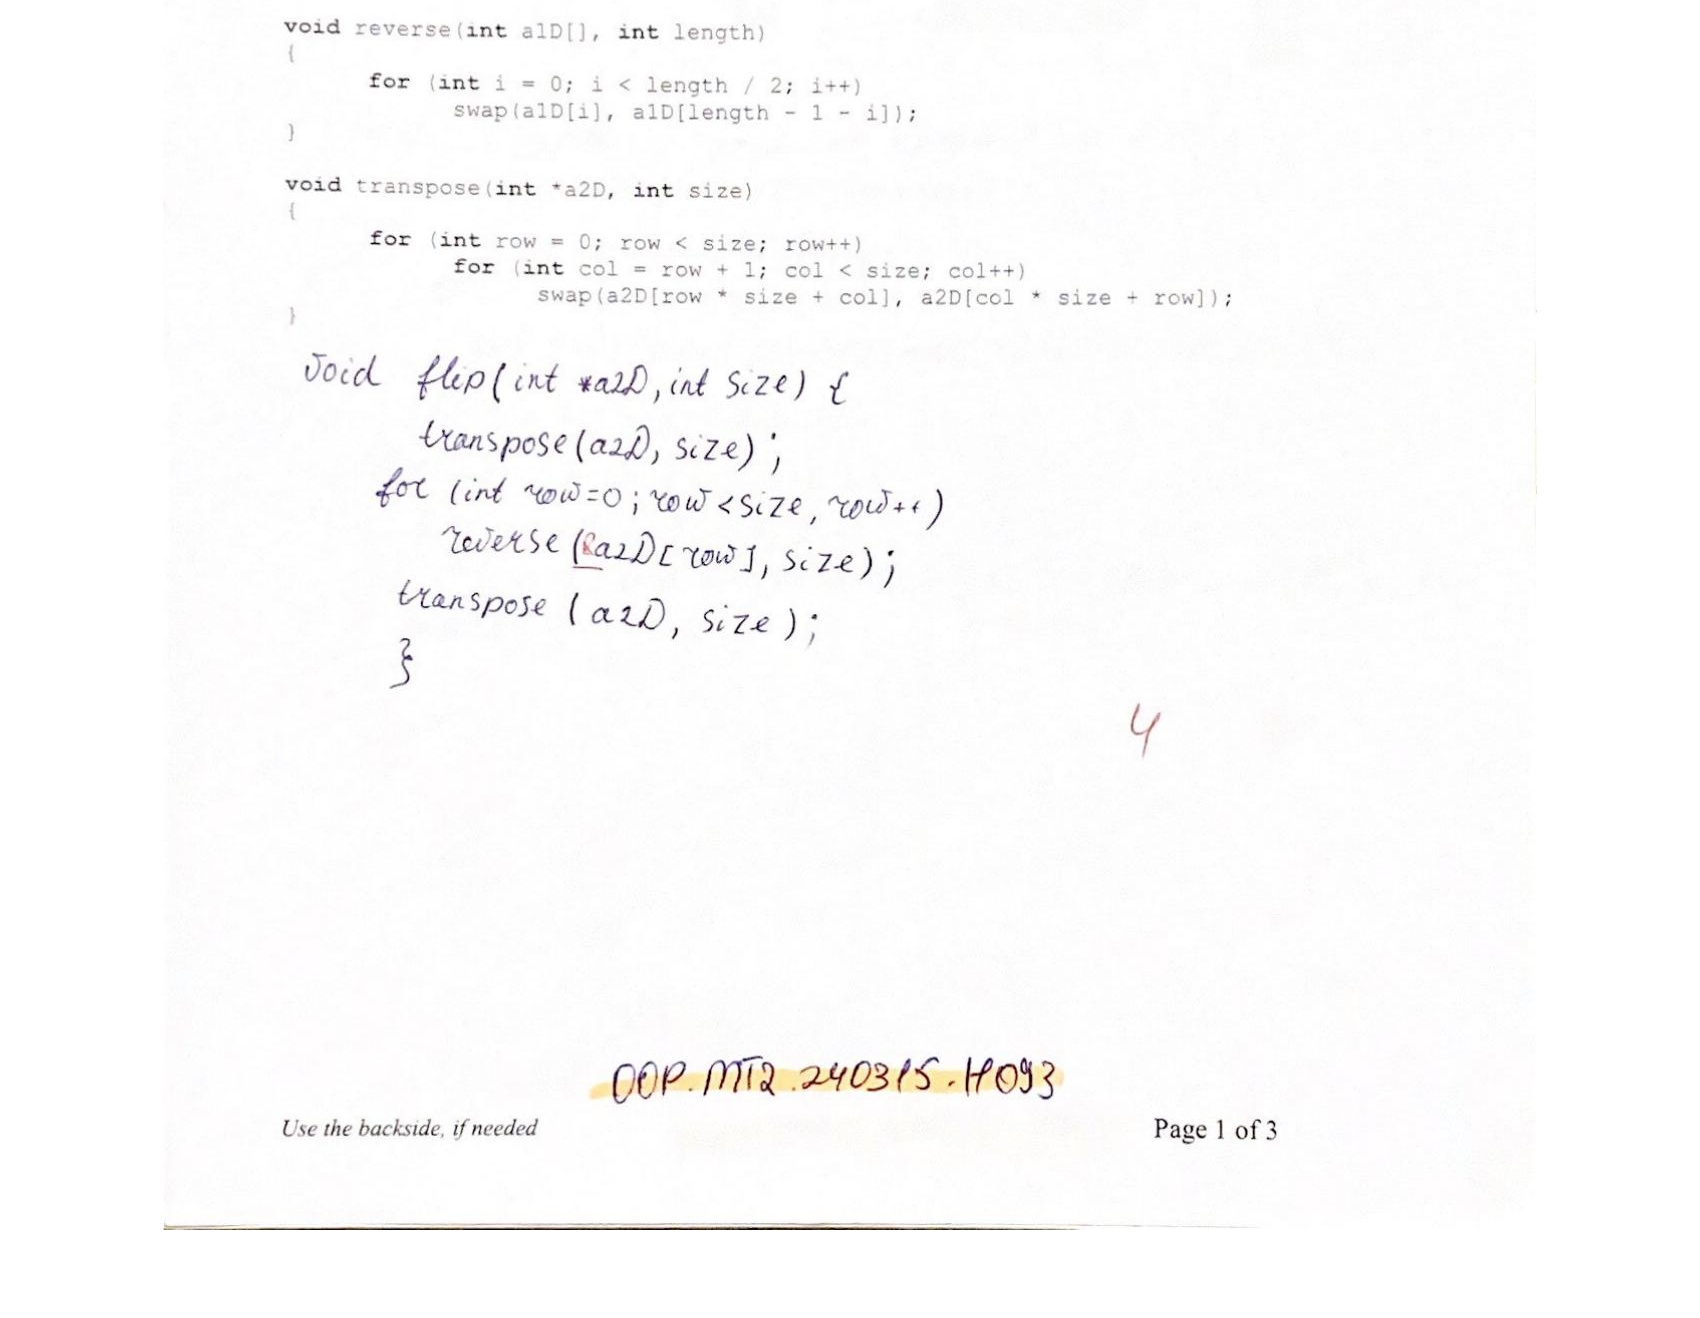 void reverse(int a1D[], int length)
{
for (int i = 0; i < length / 2; i++)
swap(a1D[i], a1D[length - 1 - i]);
}
void transpose(int *a2D, int size)
{
for (int row = 0; row < size; row++)
for (int col = row + 1; col < size; col++)
swap(a2D[row * size + col], a2D[col * size + row]);
}
void flip(int *a2D, int size) {
transpose(a2D, size);
for (int row=0; row<size, row++)
reverse(&a2D[row], size);
transpose (a2D, size);
}
4
OOP.MT2.240315.H093
Use the backside, if needed
Page 1 of 3